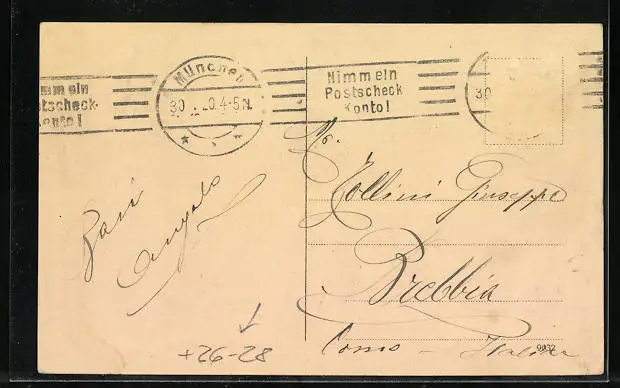 mm ein
tscheck-
onto!
München
30. .20. 4-5 N.
Nimm ein
Postscheck
Konto!
30
Collini Giuseppe
Brebbia
Como - Italia
Angelo
+26-28
9932